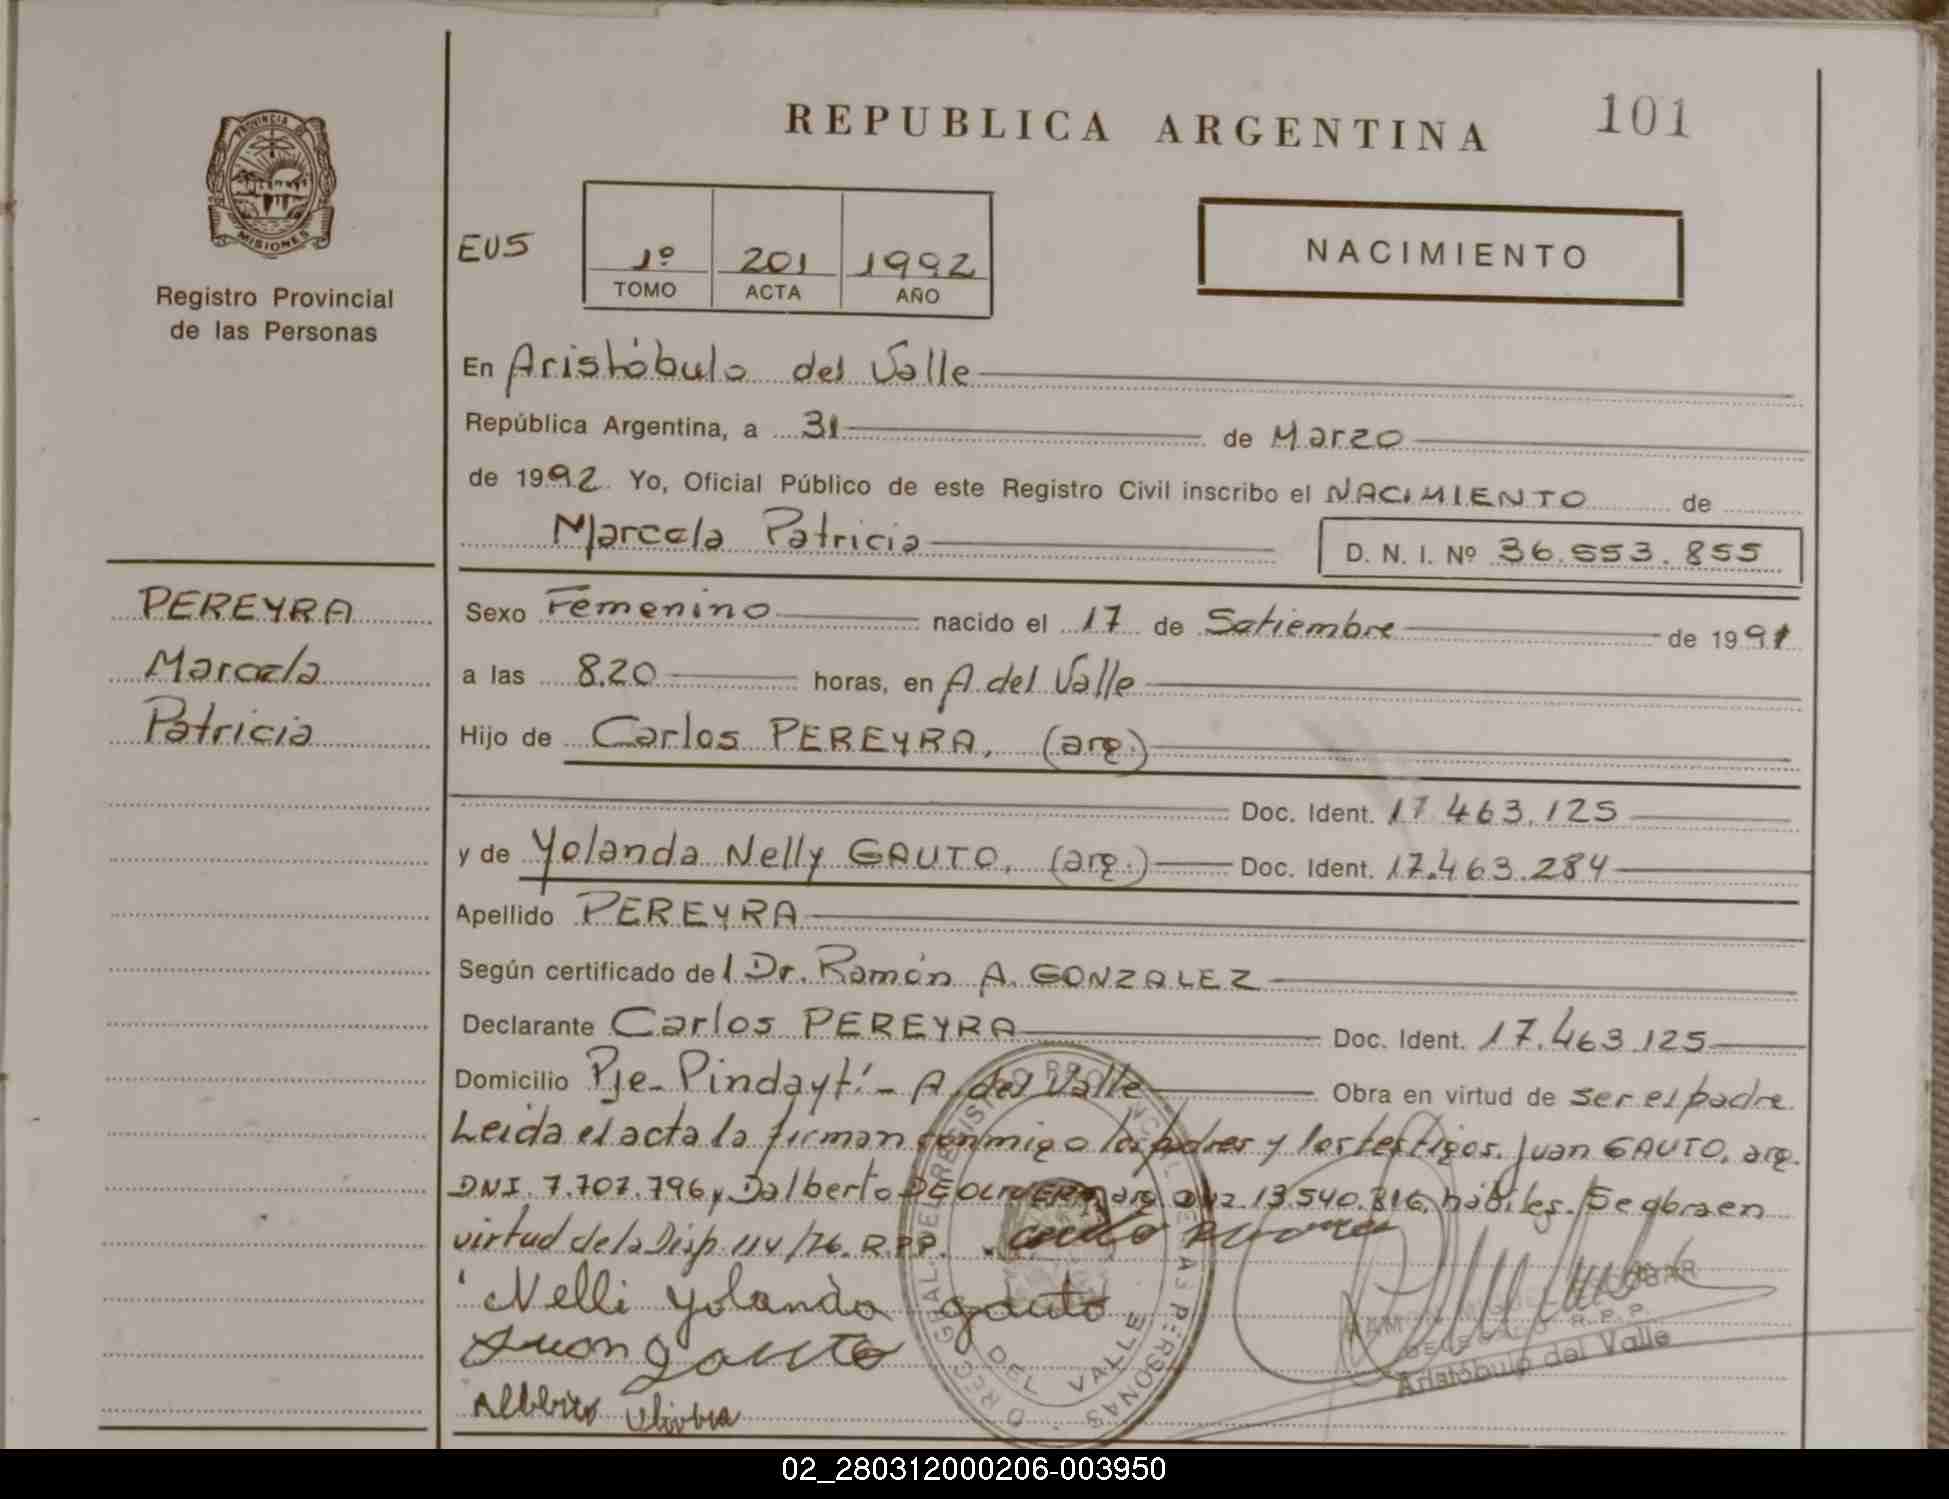 REPUBLICA ARGENTINA
101
PROVINCIA DE
MISIONES
Registro Provincial
de las Personas
EUS
1º
TOMO
201
ACTA
1992
AÑO
NACIMIENTO
En Aristóbulo del Valle
República Argentina, a 31 de Marzo
de 1992. Yo, Oficial Público de este Registro Civil inscribo el NACIMIENTO de
Marcela Patricia
D. N. I. Nº 36.553.855
PEREYRA
Marcela
Patricia
Sexo Femenino nacido el 17 de Setiembre de 1991
a las 8.20 horas, en A del Valle
Hijo de Carlos PEREYRA, (arg.)
Doc. Ident. 17.463.125
y de Yolanda Nelly GAUTO, (arg.) Doc. Ident. 17.463.284
Apellido PEREYRA
Según certificado del Dr. Ramón A. GONZALEZ
Declarante Carlos PEREYRA Doc. Ident. 17.463.125
Domicilio Pje- Pindaytí- A. del Valle Obra en virtud de ser el padre.
Leida el acta la firman conmigo los padres y los testigos. Juan GAUTO, arg.
DNI. 7.707.796 y Dalberto DEOLIVERA, arg. 13.540.816, hábiles. Se obra en
virtud de la Disp. 114/76. R.P.P.
Nelli Yolanda gauto
Juan gauto
DEL VALLE
DELEGADO R.P.P.
Aristóbulo del Valle
02_280312000206-003950